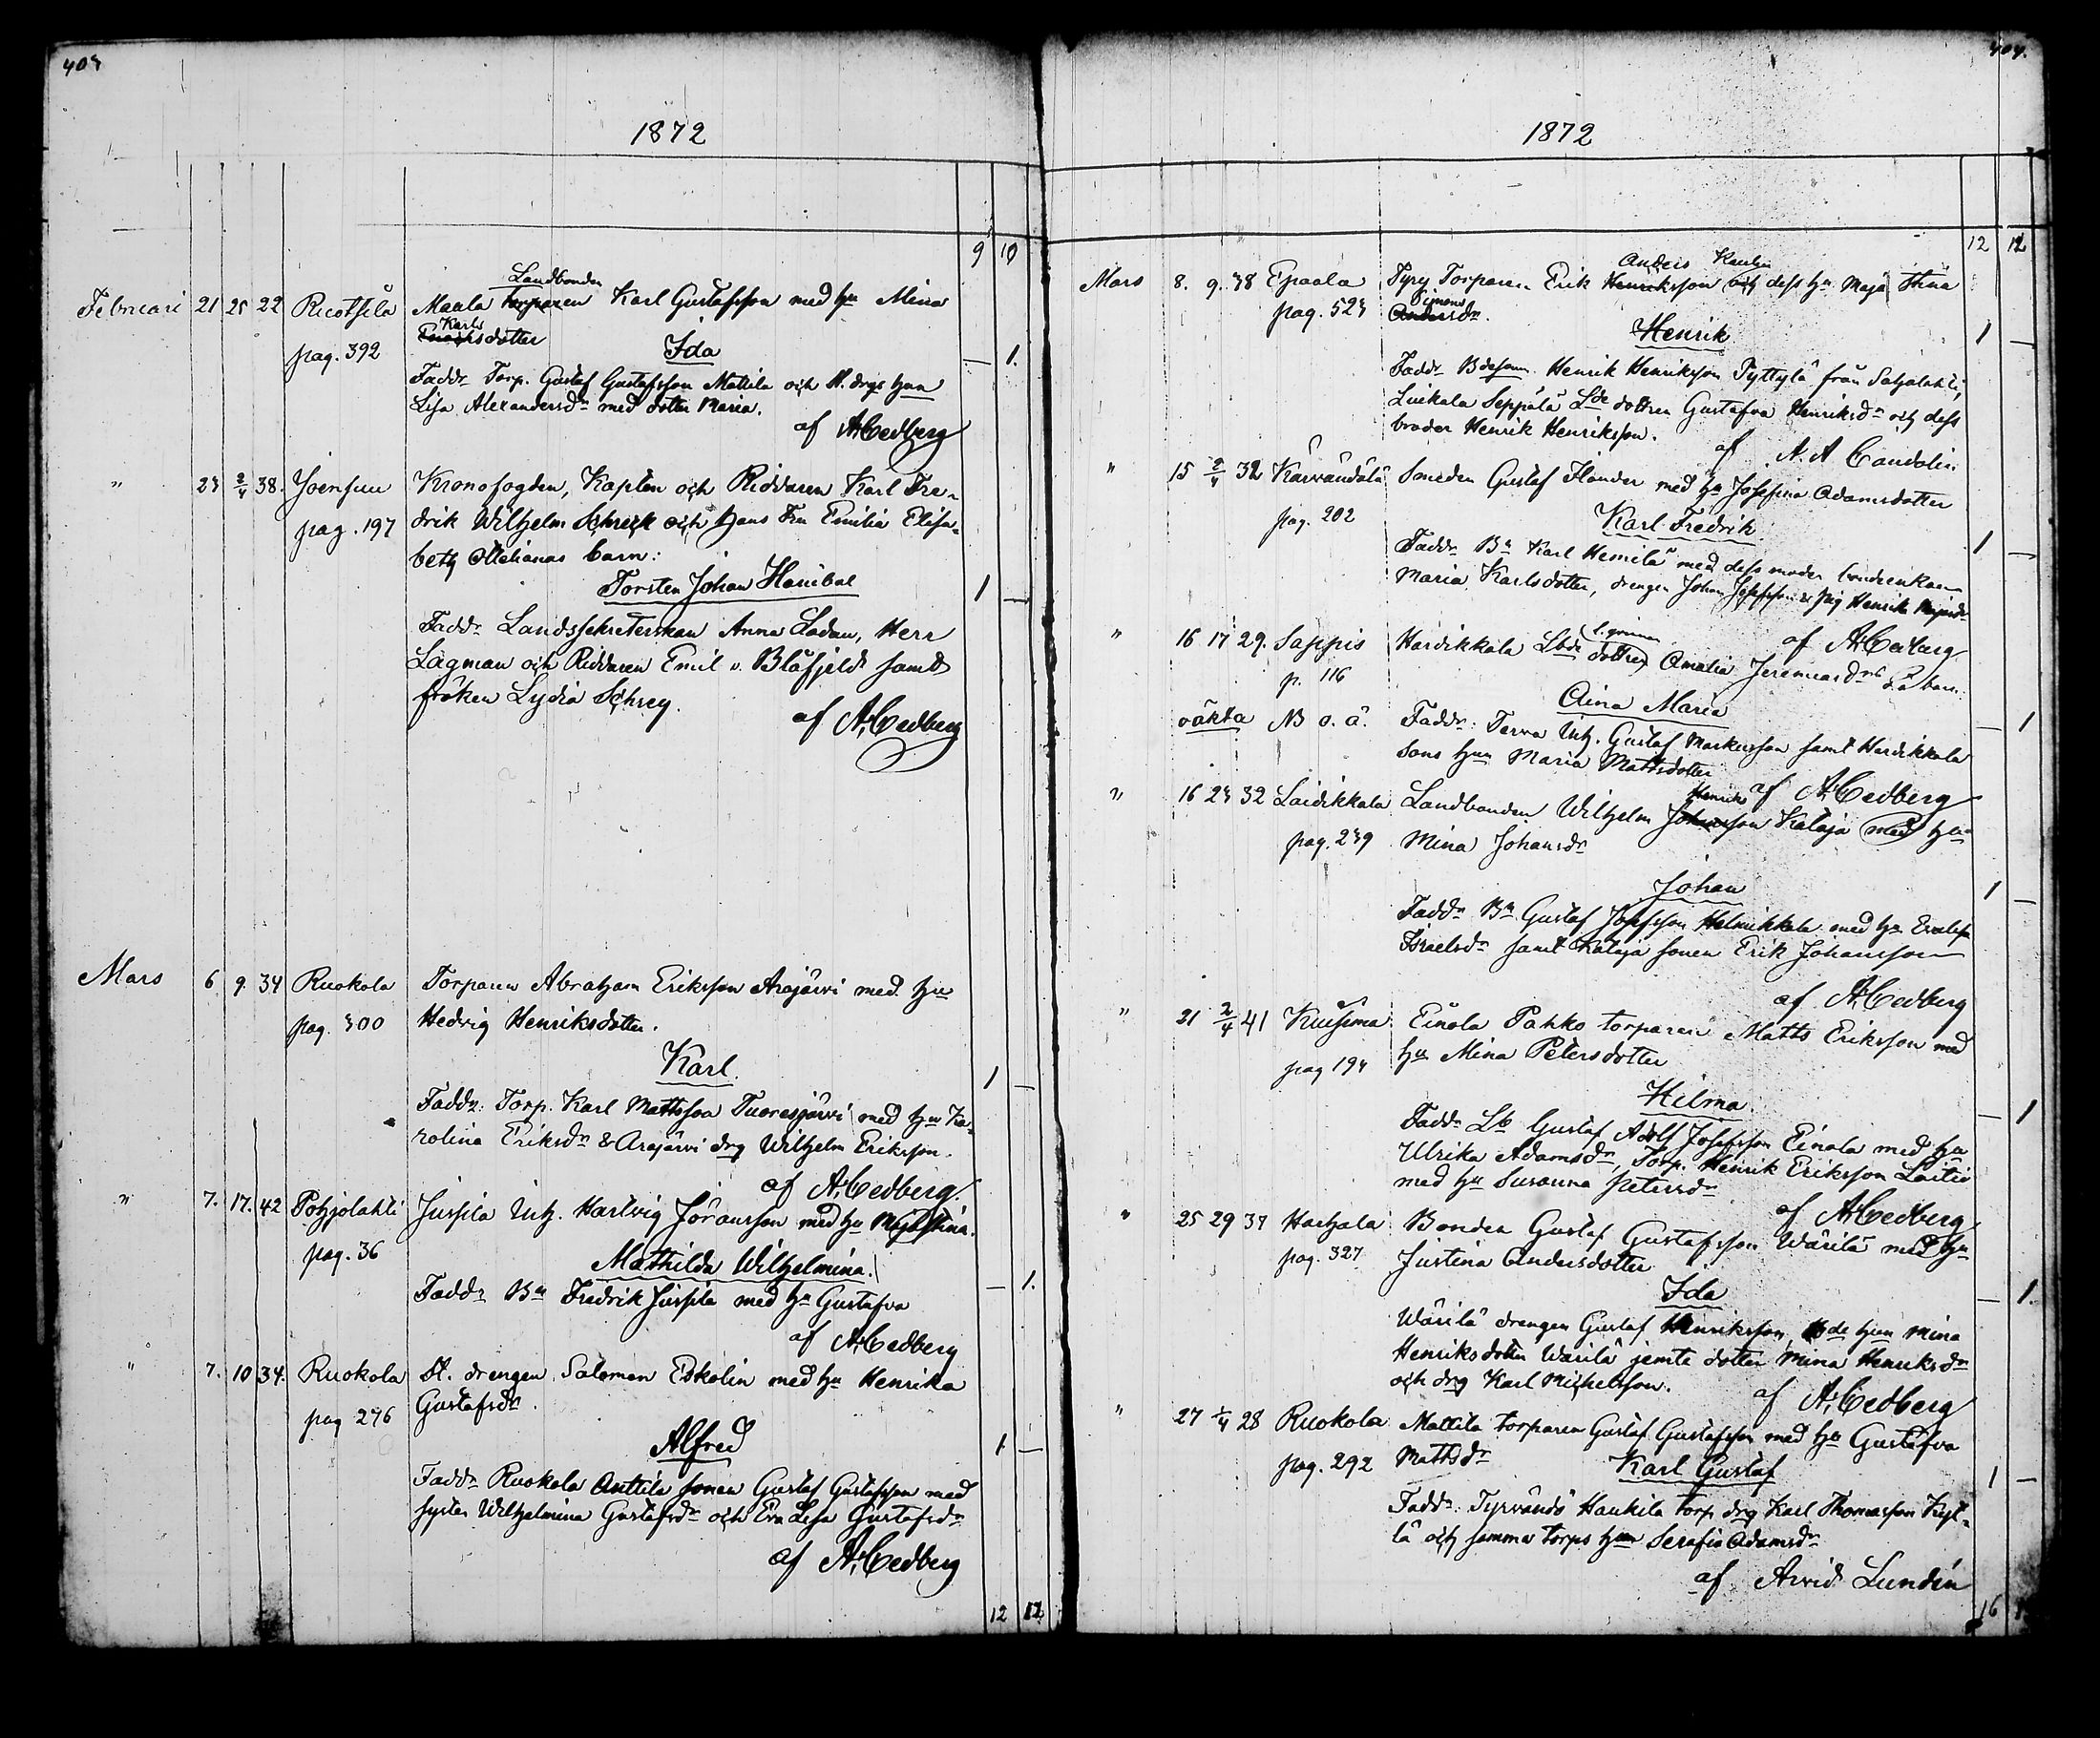 404
1872
9 10
Landbonden
Februari 21 25 22 Ruotsila Maala torparen Karl Gustafsson med hu Mina
Karls
Enoksdotter
pag. 392 Ida — 1.
Faddr Torp. Gustaf Gustafsson Mattila och St. drgs hun
Lisa Alexandersdr med dotter Maria.
af A. Cedberg
" 24 2/4 38. Joensuu Kronofogden, Kapten och Riddaren Karl Fre-
pag. 197 drik Wilhelm Schreck och hans Fru Emilia Elisa-
beth Melianas barn:
Torsten Johan Hanibal 1 —
Faddr Landssekreterskan Anna Ladau, Herr
Lagman och Riddaren Emil v. Blåfjeld samt
fröken Lydia Schrey.
af A. Cedberg
Mars 6 9. 34 Ruokola Torparen Abraham Eriksson Arajärvi med hu
pag. 300 Hedvig Henriksdotter.
Karl 1 —
Faddr: Torp. Karl Mattsson Tuoresjärvi med hu Ka-
rolina Eriksdr & Arajärvi drg Wilhelm Eriksson.
af A. Cedberg.
" 7. 17. 42 Pohjolahti Jussila Inh. Hartvig Göransson med hu Maja Stina.
pag. 36 Mathilda Wilhelmina. — 1.
Faddr Bn Fredrik Jussila med hu Gustafva
af A. Cedberg
" 7. 10 34. Ruokola St. drengen Salomon Eskolin med hu Henrika
pag 276 Gustafsdr.
Alfred 1 —
Faddr Ruokola Anttila sonen Gustaf Gustafsson med
syster Wilhelmina Gustafsdr och Eva Lisa Gustafsdr
af A. Cedberg
12 12
404.
1872
12 12
Anders
Mars 8. 9. 38 Epaala Tyry Torparen Erik Henriksson och dess hu Maja Stina
Simons
pag. 524 Andersdr.
Henrik 1 —
Faddr Bdesonen Henrik Henriksson Pyttylä från Sahalahti,
Liikala Seppälä Lbde dottren Gustafva Henriksdr och dess
broder Henrik Henriksson.
af A. A Candolin
" 15 2/4 32 Karvandala Smeden Gustaf Flander med hu Josefina Adamsdotter
pag. 202 Karl Fredrik 1 —
Faddr Bn Karl Hemilä med dess moder bondeenkan
Maria Karlsdotter, drengen Johan Josefsson & pig Henrika
af A. Cedberg
" 16 17 29. Sappis Hardikkala Lbde dottren Amalia Jeremiasdrs o.ä barn:
p. 116 Aina Maria — 1
oäkta NB o. ä. Faddr: Terva Inh. Gustaf Markusson samt Hardikkala
sons hun Maria Mattsdotter
af A. Cedberg
Henriks
" 16 24 32 Laidikkala Landbonden Wilhelm Johansson Kataja med hu
pag. 249 Mina Johansdr
Johan 1 —
Faddr Bn Gustaf Josefsson Helmikkala med hu Evalisa
Israelsdr samt Kataja sonen Erik Johansson
af A. Cedberg
" 21 2/4 41 Kuisema Einola Pahko torparen Matts Eriksson med
pag 194 hu Mina Petersdotter
Hilma — 1
Faddr Lb Gustaf Adolf Josefsson Einola med hu
Ulrika Adamsdr, Torp. Henrik Eriksson Laitio
med hu Susanna Petersdr
af A. Cedberg
" 25 29 37 Harhala Bonden Gustaf Gustafsson Wärilä med hu
pag. 327 Justina Andersdotter
Ida — 1.
Wärilä drengen Gustaf Henriksson, Bde hun Mina
Henriksdotter Wärilä jemte dotter Mina Henriksdr
och drg Karl Michelsson.
af A. Cedberg
" 27 1/4 28 Ruokola Mattila torparen Gustaf Gustafsson med hu Gustafva
pag. 292 Mattsdr
Karl Gustaf 1 —
Faddr: Tyrvändö Haukila torp drg Karl Thomasson Kyt-
lä och samma torps hun Serafia Adamsdr
af Arvid Lundén
16